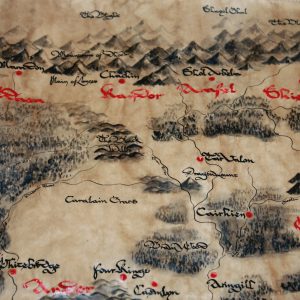 The Blight
Shayol Ghul
The Bl
Mountains of Dhoom
Maradon
Plain of Lances
Chachin
Shol Arbela
daea
Kandor
Arafel
Shi
The Black
Hills
Tar Valon
Dragonmount
Caralain Grass
Cairhien
Braem Wood
Whitebridge
Four Kings
Aringill
Andor
Caemlyn